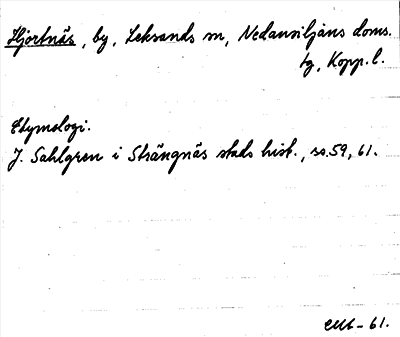 Hjortnäs, by, Leksands sn, Nedansiljans doms.
tg, Kopp. l.
Etymologi.
J. Sahlgren i Strängnäs stads hist., ss. 59, 61.
-61.